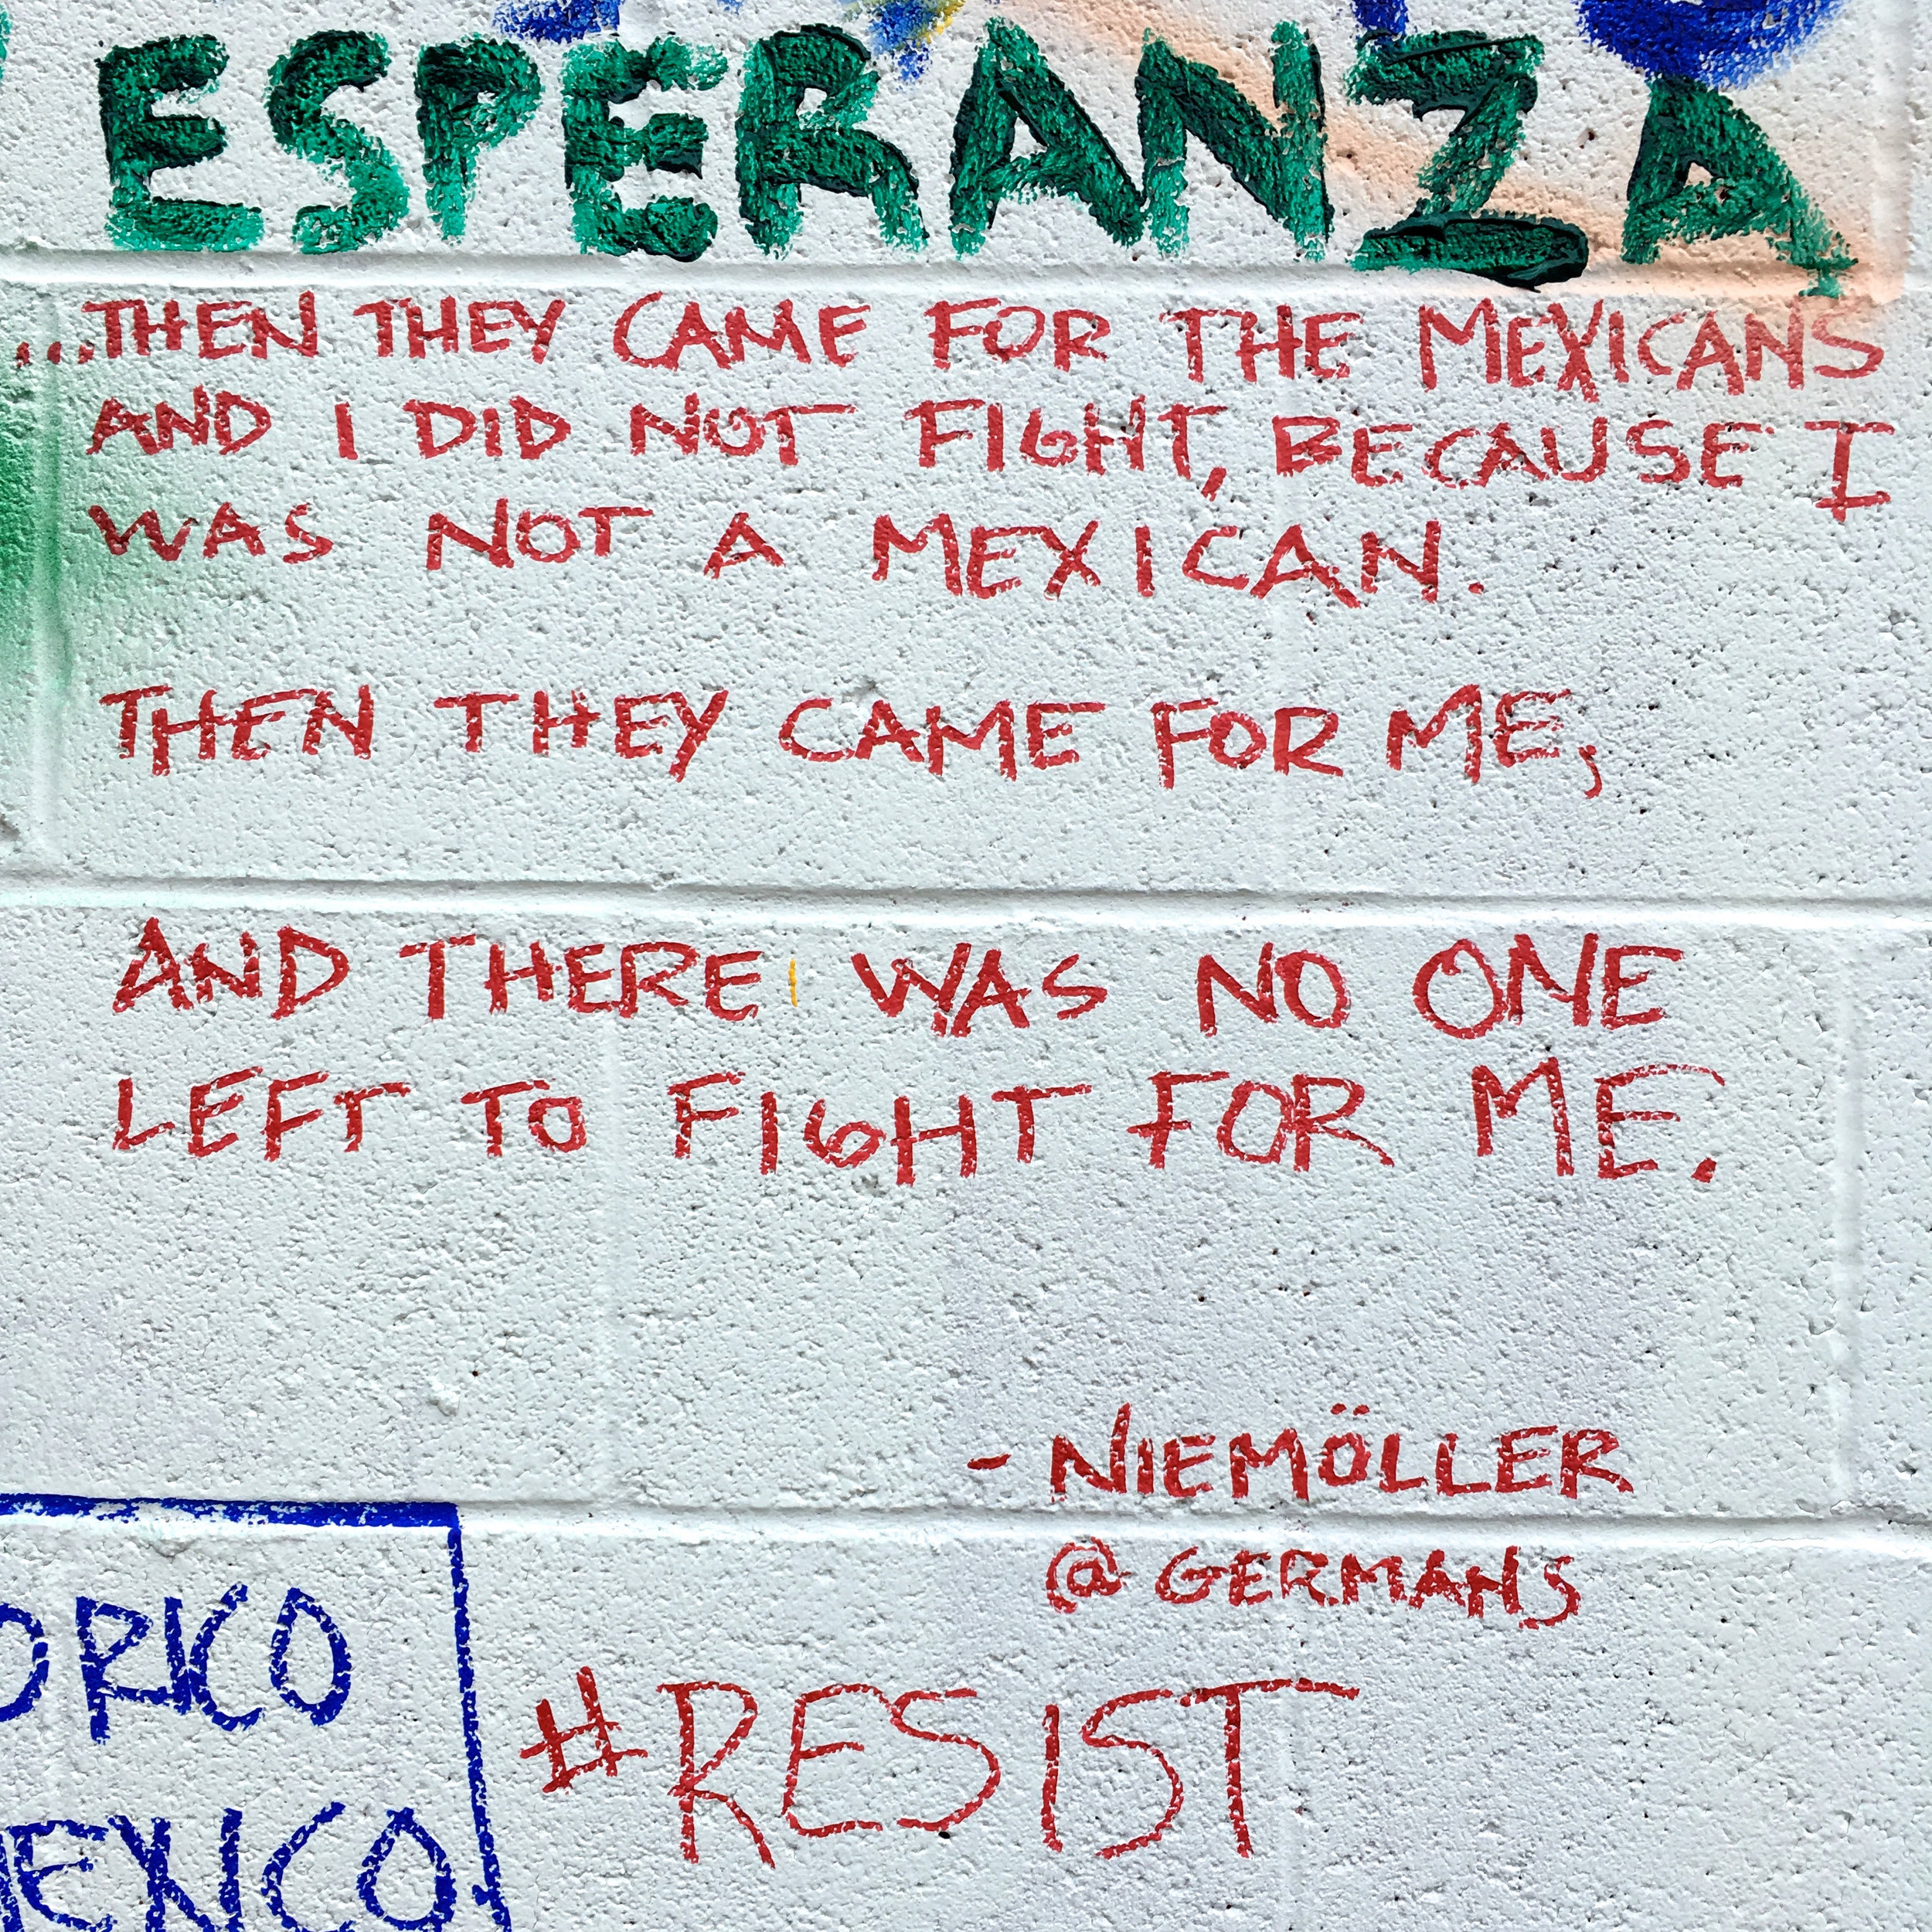 ESPERANZA
...THEN THEY CAME FOR THE MEXICANS
AND I DID NOT FIGHT, BECAUSE I
WAS NOT A MEXICAN.
THEN THEY CAME FOR ME,
AND THERE WAS NO ONE
LEFT TO FIGHT FOR ME.
- NIEMÖLLER
@GERMANS
#RESIST
ORICO
MEXICO